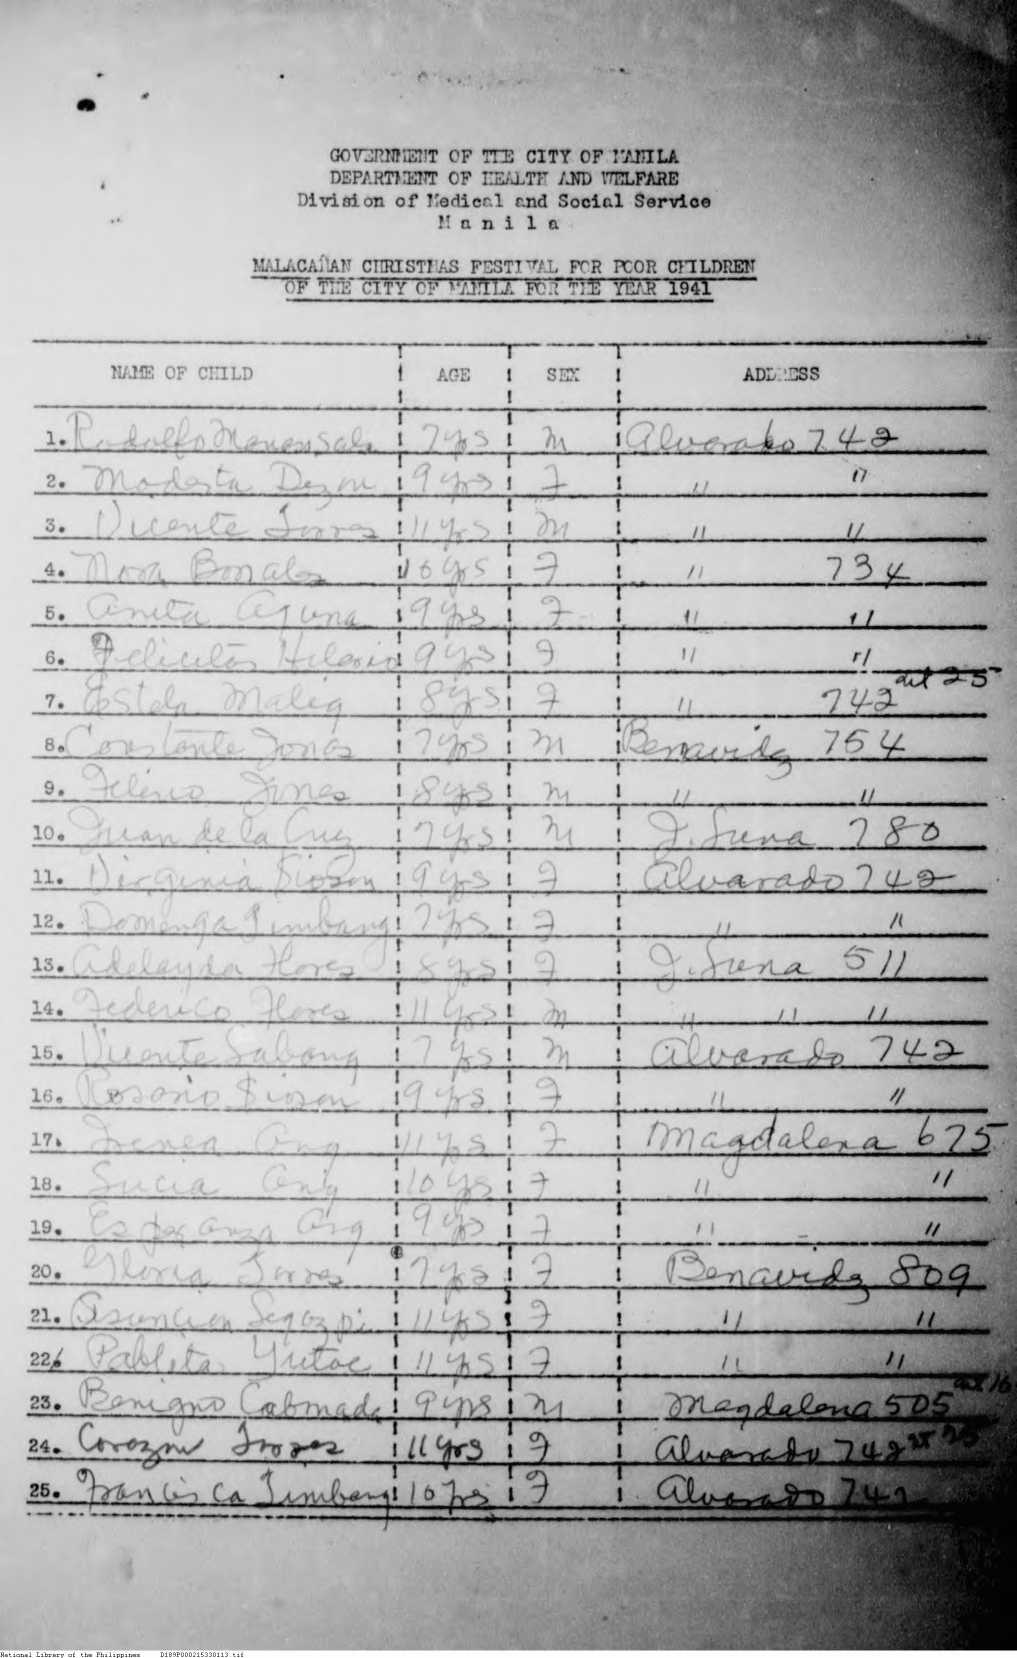 GOVERNMENT OF THE CITY OF MANILA
DEPARTMENT OF HEALTH AND WELFARE
Division of Medical and Social Service
M a n i l a
MALACAÑAN CHRISTMAS FESTIVAL FOR POOR CHILDREN
OF THE CITY OF MANILA FOR THE YEAR 1941
NAME OF CHILD AGE SEX ADDRESS
1. Rodolfo Manansala 7 yrs M Alvarado 742
2. Modesta Dizon 9 yrs F " "
3. Vicente Torres 11 yrs M " "
4. Nora 10 yrs F " 734
5. Anita Aguna 9 yrs F " "
6. Felicitas Hilario 9 yrs F " "
7. Estela Malig 8 yrs F " 742 int 25
8. Constante Jonas 7 yrs M Benavidez 754
9. 8 yrs M " "
10. Juan de la Cruz 7 yrs M J. Luna 780
11. Virginia Sioson 9 yrs F Alvarado 742
12. Dominga Timbang 7 yrs F " "
13. Adelayda Flores 8 yrs F J. Luna 511
14. Federico Flores 11 yrs M " " "
15. Vicente Labong 7 yrs M Alvarado 742
16. Rosario Sioson 9 yrs F " "
17. Irenea Ang 11 yrs F Magdalena 675
18. Lucia Ang 10 yrs F " "
19. Esperanza Ang 9 yrs F " "
20. Gloria Torres 7 yrs F Benavidez 809
21. Asuncion Segozpi 11 yrs F " "
22. Pablita Yutoc 11 yrs F " "
23. Benigno Cabmada 9 yrs M Magdalena 505 int 16
24. Corazon Torres 11 yrs F Alvarado 742 int 25
25. Francisca Timbang 10 yrs F Alvarado 742
National Library of the Philippines D189P000215330113.tif